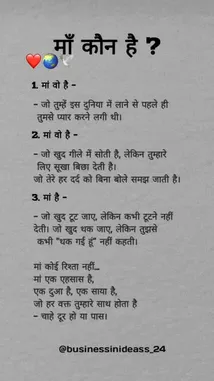 माँ कौन है ?
1. मां वो है -
- जो तुम्हें इस दुनिया में लाने से पहले ही
तुमसे प्यार करने लगी थी।
2. मां वो है -
- जो खुद गीले में सोती है, लेकिन तुम्हारे
लिए सूखा बिछा देती है।
जो तेरे हर दर्द को बिना बोले समझ जाती है।
3. मां है -
- जो खुद टूट जाए, लेकिन कभी टूटने नहीं
देती। जो खुद थक जाए, लेकिन तुझसे
कभी "थक गई हूं" नहीं कहती।
मां कोई रिश्ता नहीं...
मां एक एहसास है,
एक दुआ है, एक साया है,
जो हर वक्त तुम्हारे साथ होता है
- चाहे दूर हो या पास।
@businessinideass_24